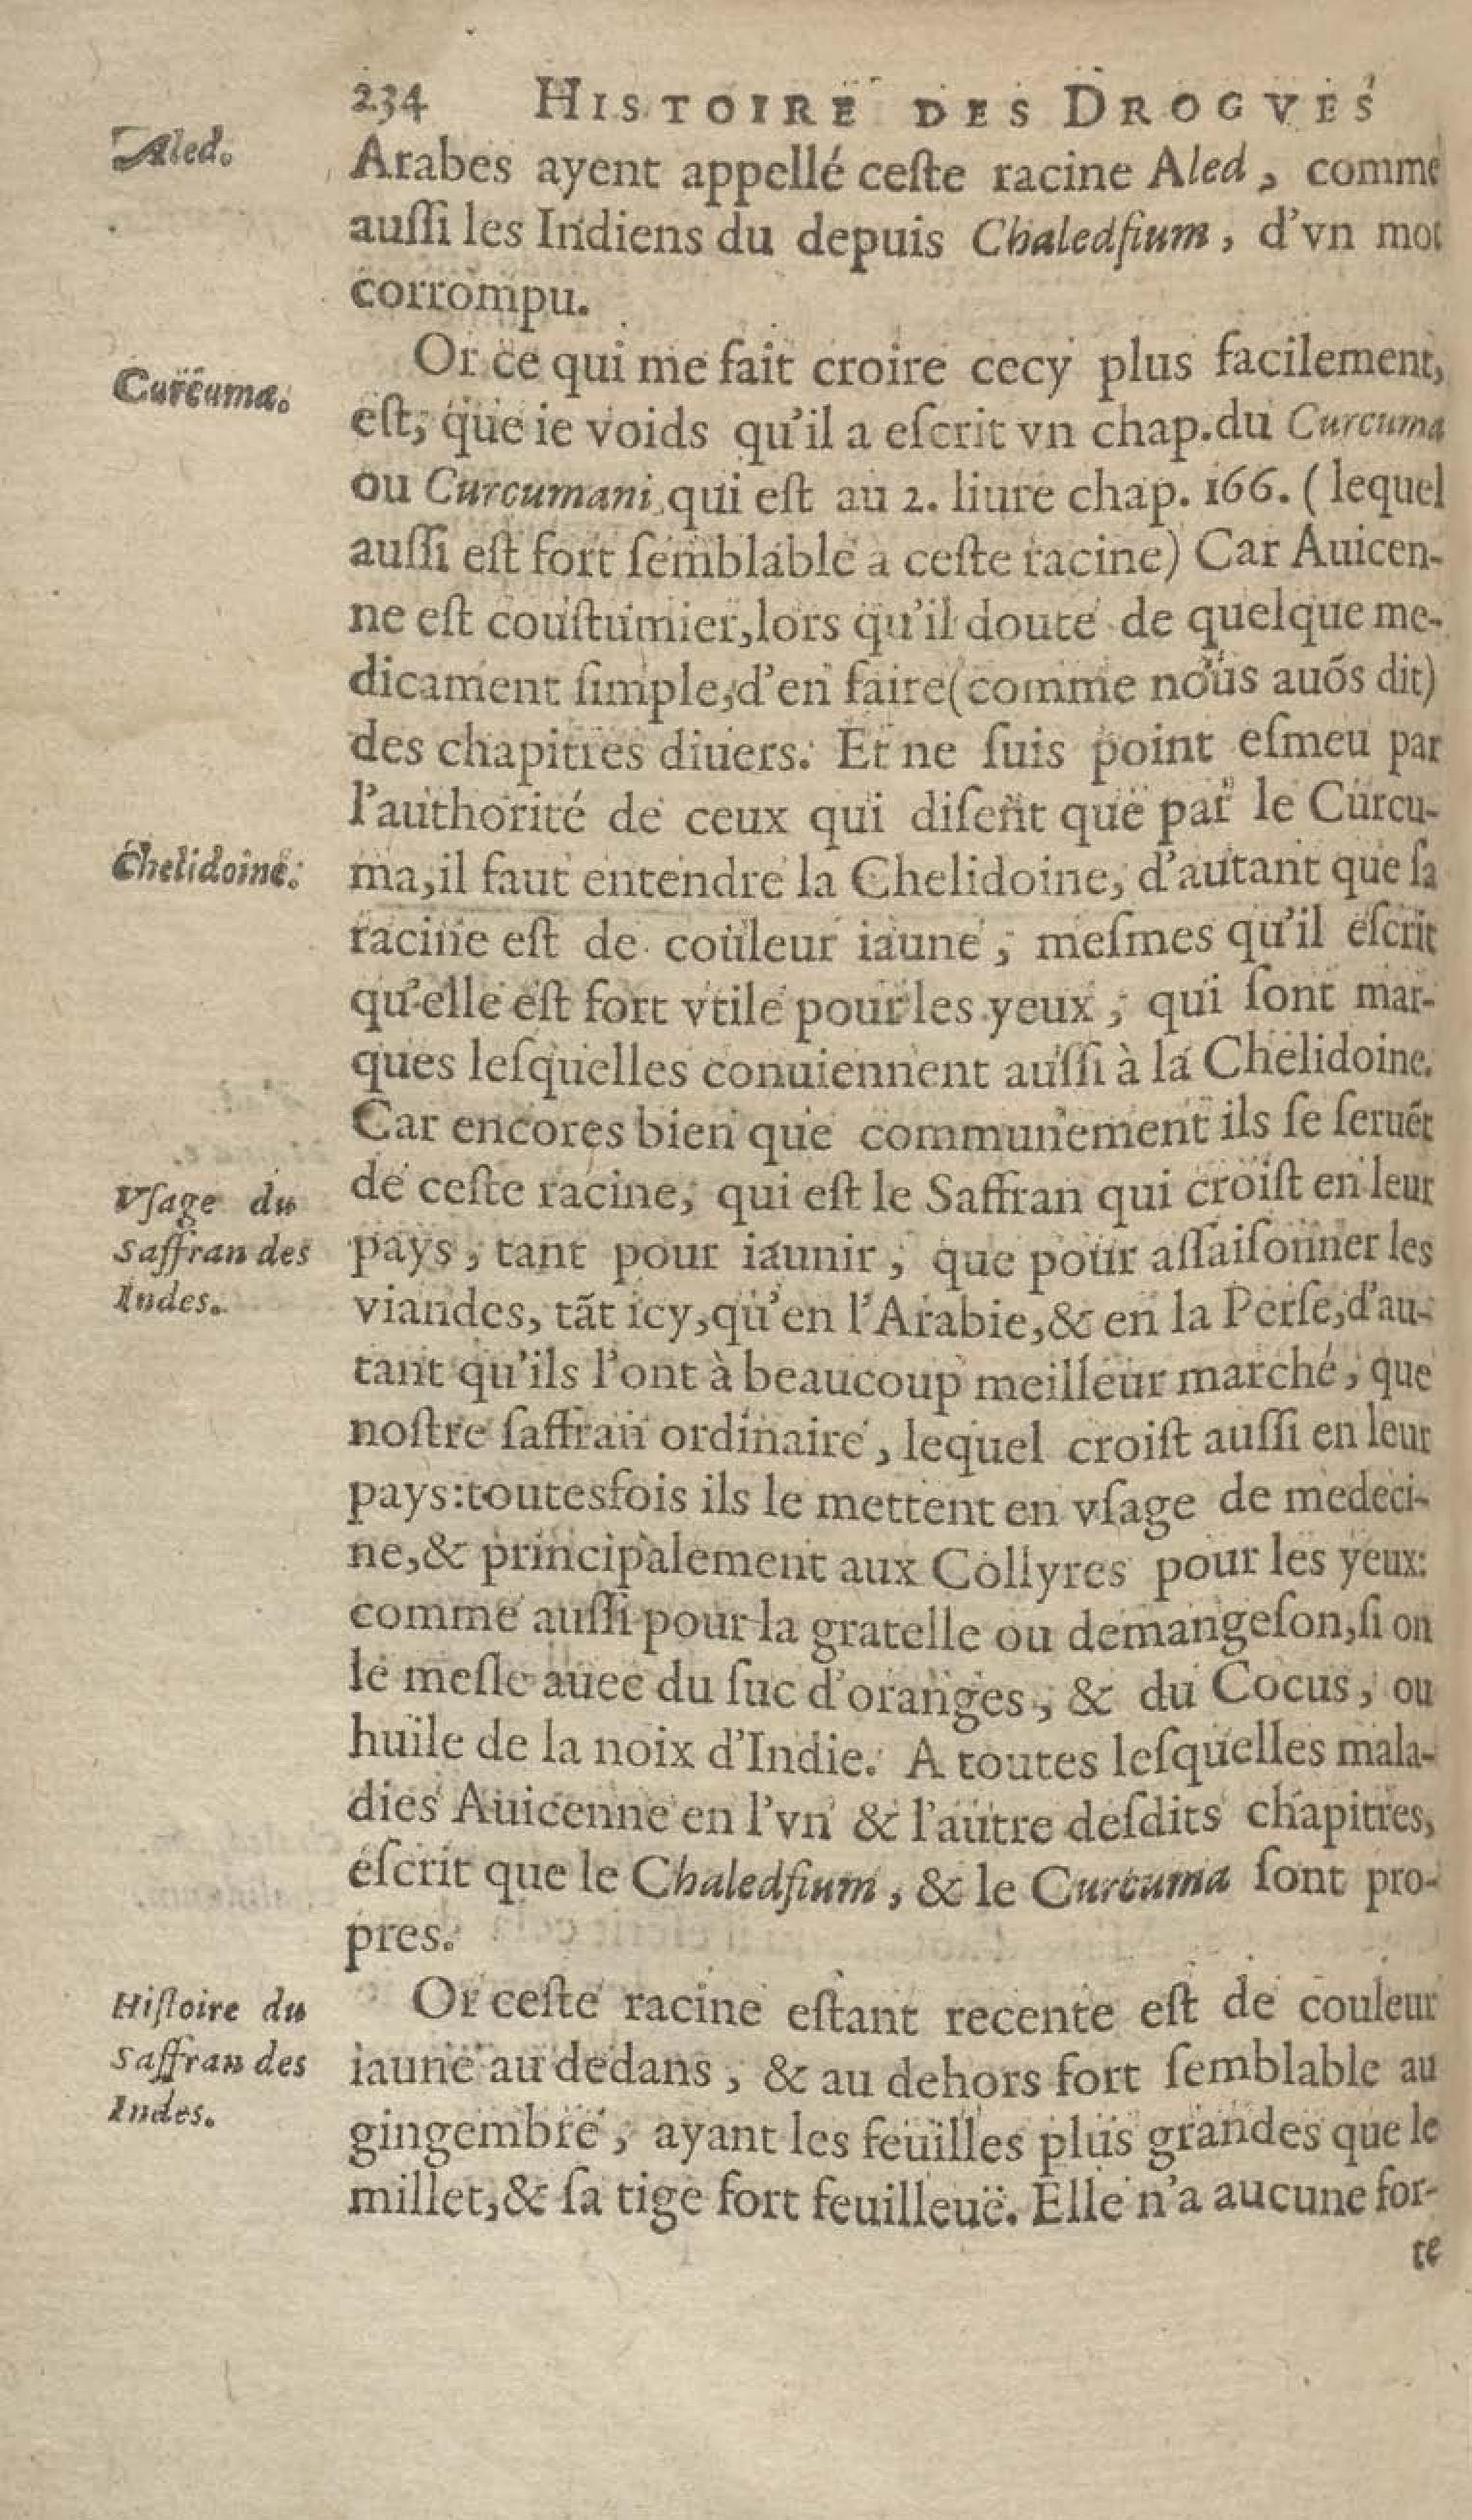 234 HISTOIRE DES DROGVES
Aled.
Arabes ayent appellé ceſte racine Aled, comme
auſſi les Indiens du depuis Chaledfium, d'vn mot
corrompu.
Curcuma.
Or ce qui me fait croire cecy plus facilement,
eſt, que ie voids qu'il a eſcrit vn chap. du Curcuma
ou Curcumani qui eſt au 2. liure chap. 166. (lequel
auſſi eſt fort ſemblable a ceſte racine) Car Auicen-
ne eſt couſtumier, lors qu'il doute de quelque me-
dicament ſimple, d'en faire (comme nous auõs dit)
des chapitres diuers. Et ne ſuis point eſmeu par
l'authorité de ceux qui diſent que par le Curcu-
Chelidoine.
ma, il faut entendre la Chelidoine, d'autant que ſa
racine eſt de couleur iaune, meſmes qu'il eſcrit
qu'elle eſt fort vtile pour les yeux, qui ſont mar-
ques leſquelles conuiennent auſſi à la Chelidoine.
Car encores bien que communement ils ſe ſeruẽt
Vſage du
Saffran des
Indes.
de ceſte racine, qui eſt le Saffran qui croiſt en leur
pays, tant pour iaunir, que pour aſſaiſonner les
viandes, tãt icy, qu'en l'Arabie, & en la Perſe, d'au-
tant qu'ils l'ont à beaucoup meilleur marché, que
noſtre ſaffran ordinaire, lequel croiſt auſſi en leur
pays: toutesfois ils le mettent en vſage de medeci-
ne, & principalement aux Collyres pour les yeux:
comme auſſi pour la gratelle ou demangeſon, ſi on
le meſle auec du ſuc d'oranges, & du Cocus, ou
huile de la noix d'Indie. A toutes leſquelles mala-
dies Auicenne en l'vn & l'autre deſdits chapitres,
eſcrit que le Chaledfium, & le Curcuma ſont pro-
pres.
Hiſtoire du
Saffran des
Indes.
Or ceſte racine eſtant recente eſt de couleur
iaune au dedans, & au dehors fort ſemblable au
gingembre, ayant les feuilles plus grandes que le
millet, & ſa tige fort feuilleuë. Elle n'a aucune for-
te